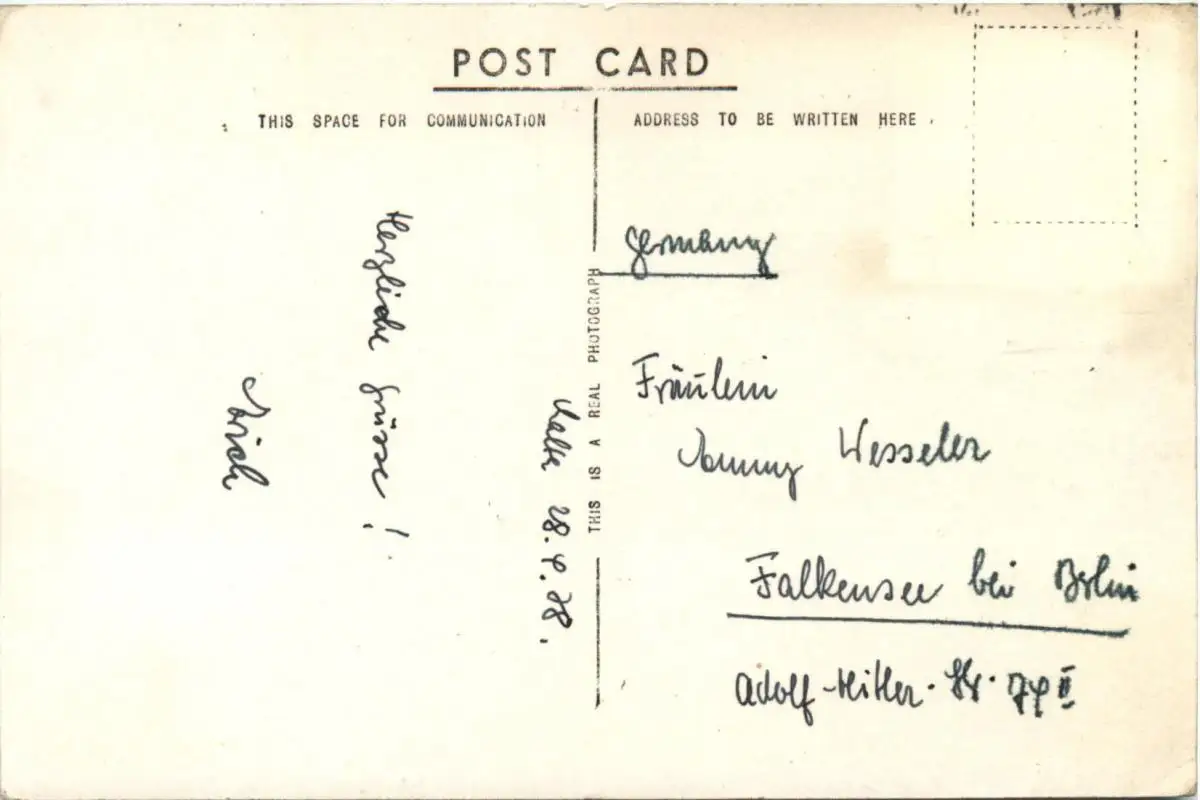 POST CARD
THIS SPACE FOR COMMUNICATION
ADDRESS TO BE WRITTEN HERE
THIS IS A REAL PHOTOGRAPH
Malta 28.4.38.
Herzliche Grüsse!
Germany
Fräulein
Wesseler
Falkensee bei Berlin
Adolf-Hitler-Str. 74 II